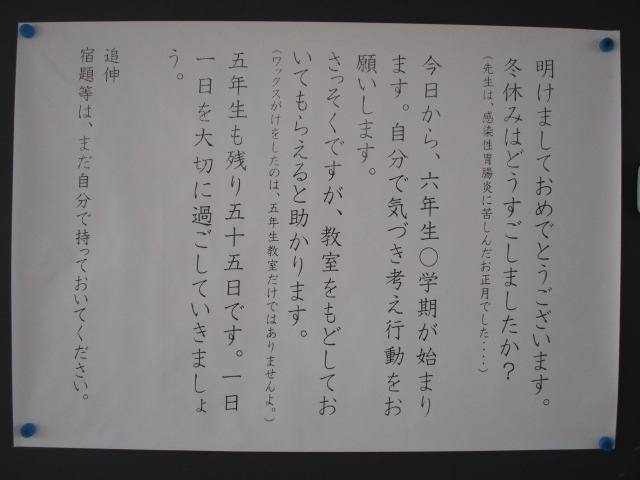 明けましておめでとうございます。
冬休みはどうすごしましたか？
（先生は、感染性胃腸炎に苦しんだお正月でした・・・・）
今日から、六年生〇学期が始まり
ます。自分で気づき考え行動をお
願いします。
さっそくですが、教室をもどしてお
いてもらえると助かります。
（ワックスがけをしたのは、五年生教室だけではありませんよ。）
五年生も残り五十五日です。一日
一日を大切に過ごしていきましょ
う。
追伸
宿題等は、まだ自分で持っておいてください。